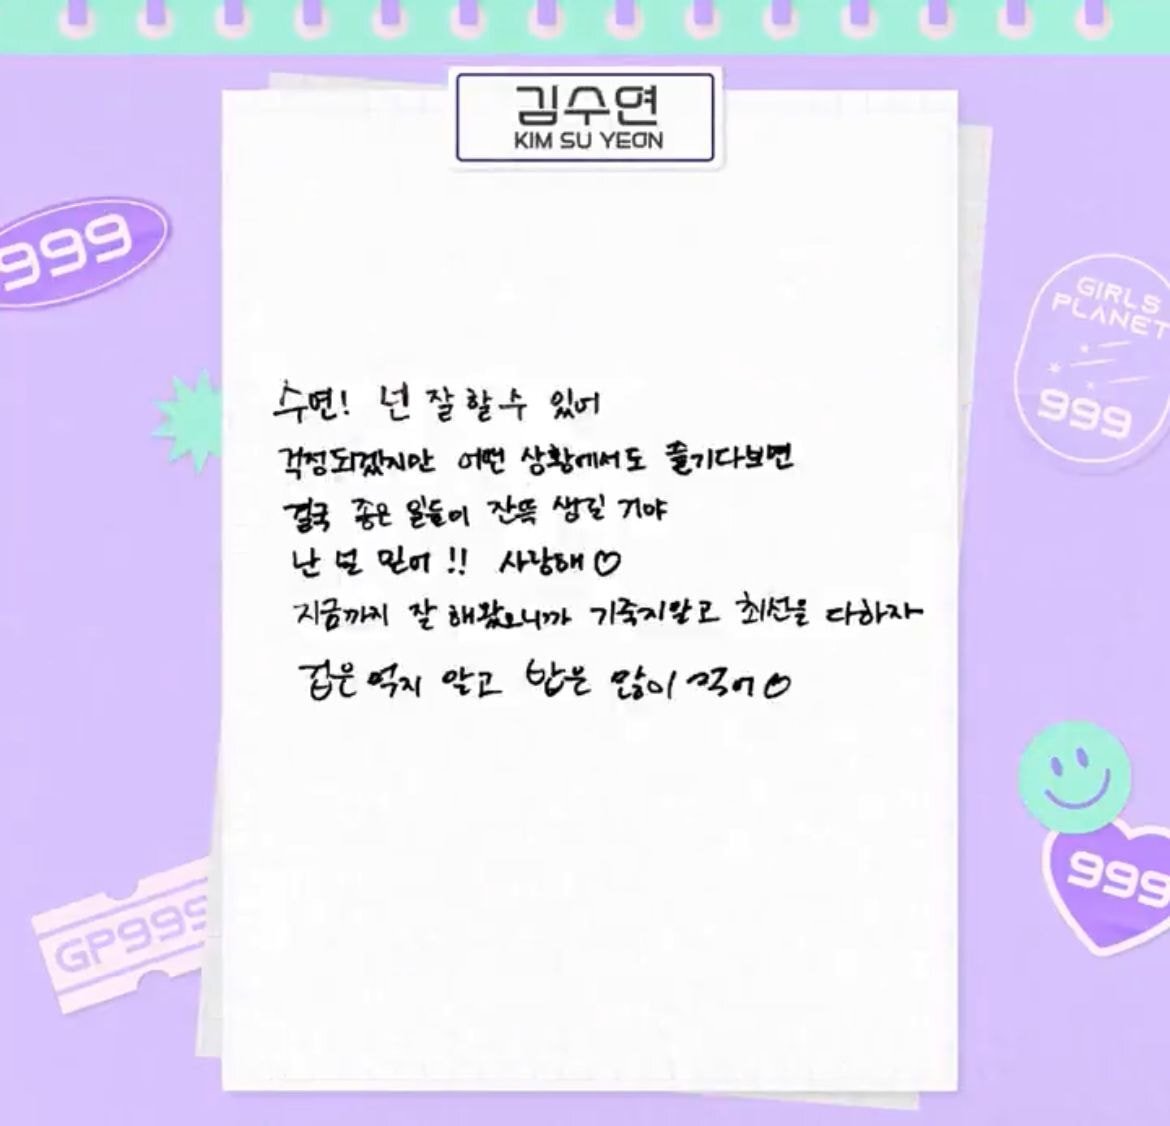 김수연
KIM SU YEON
999
GIRLS
PLANET
999
수연! 넌 잘 할 수 있어
걱정되겠지만 어떤 상황에서도 즐기다보면
결국 좋은 일들이 잔뜩 생길 거야
난 널 믿어!! 사랑해♡
지금까지 잘 해왔으니까 기죽지말고 최선을 다하자
겁은 먹지 말고 밥은 많이 먹어♡
999
GP999